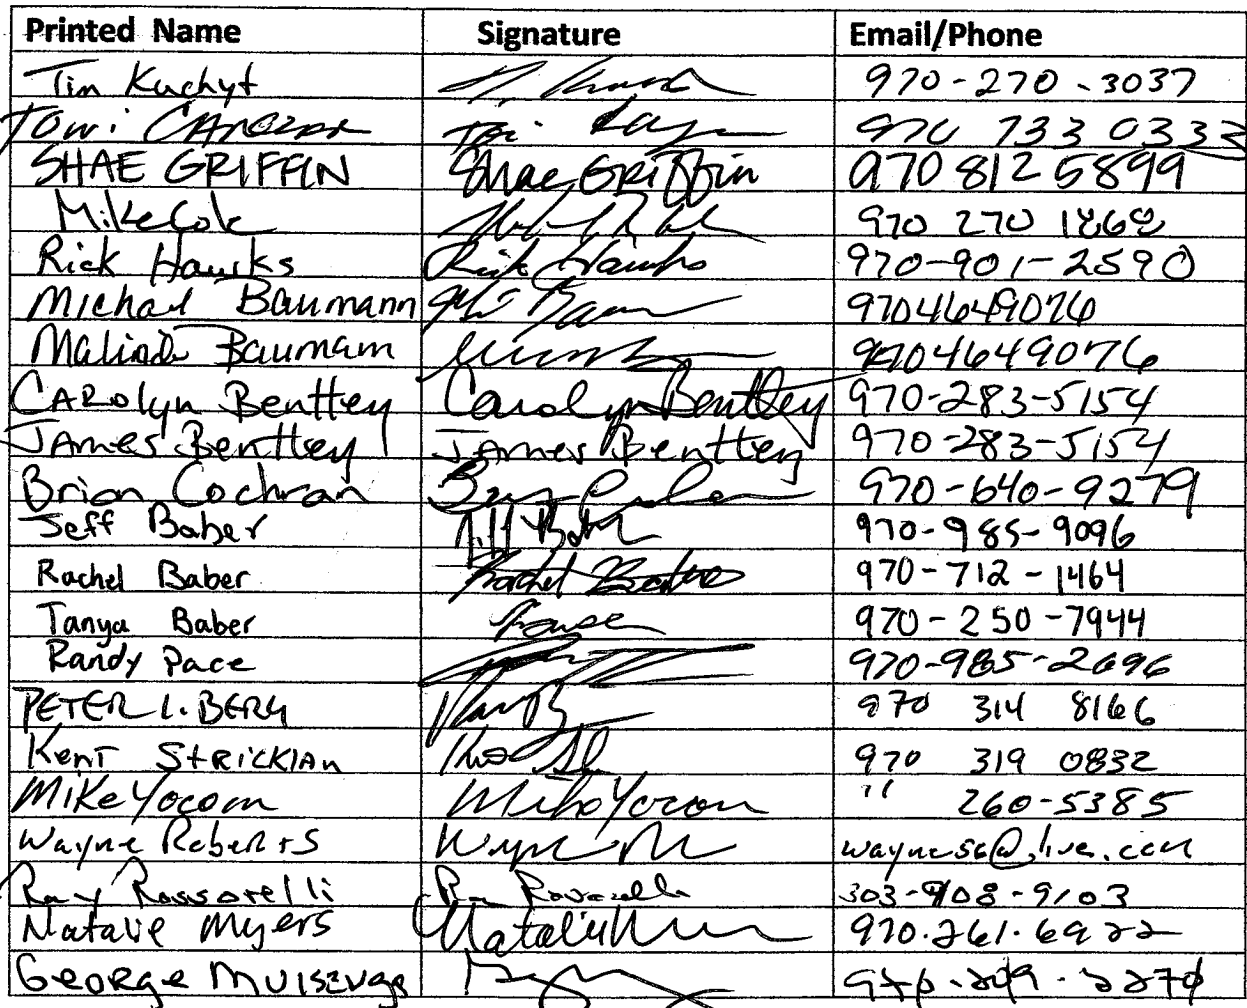 Printed Name Signature Email/Phone
Tim Kuchyt 970-270-3037
Towi 970 733 0333
SHAE GRIFFIN Shae GRiffin 970 812 5899
Mike Cole 970 270 1868
Rick Hawks Rick Hawks 970-901-2590
Michael Baumann 9704649076
Malinda Baumann 9704649076
CAROlyn Benttey Carolyn Benttey 970-283-5154
JAmes Benttey JAmes Benttey 970-283-5154
Brian Cochran 970-640-9279
Jeff Baber Jeff Baber 970-985-9096
Rachel Baber Rachel Baber 970-712-1464
Tanya Baber 970-250-7944
Randy Pace 970-985-2696
PETER L. BERG 970 314 8166
Kent StRicklAn 970 319 0832
Mike Yocom Mike Yocom " 260-5385
Wayne Roberts Wayne wayne56@live.com
Ray 303-908-9103
Natalie Myers Natalie 970.261.6922
George 970-209-2270